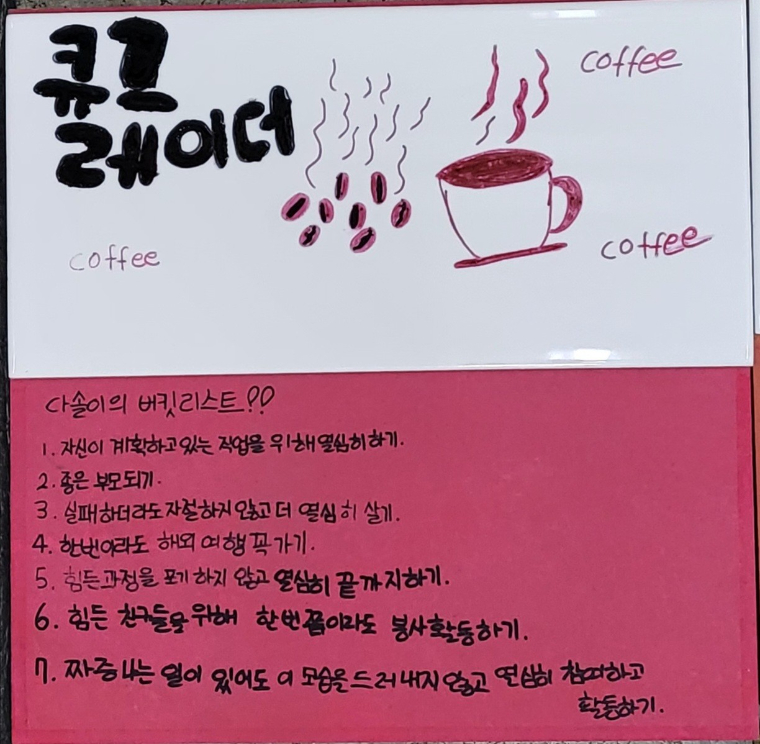 큐그
레이더
coffee
coffee
coffee
다솔이의 버킷리스트??
1. 자신이 계획하고있는 직업을 위해 열심히하기.
2. 좋은 부모되기.
3. 실패하더라도 자절하지않고 더 열심히 살기.
4. 한번이라도 해외여행 꼭 가기.
5. 힘든과정을 포기하지 않고 열심히 끝까지하기.
6. 힘든 친구들을위해 한번쯤이라도 봉사활동하기.
7. 짜증나는 일이 있어도 이 모습을 드러내지않고 열심히 참여하고
활동하기.